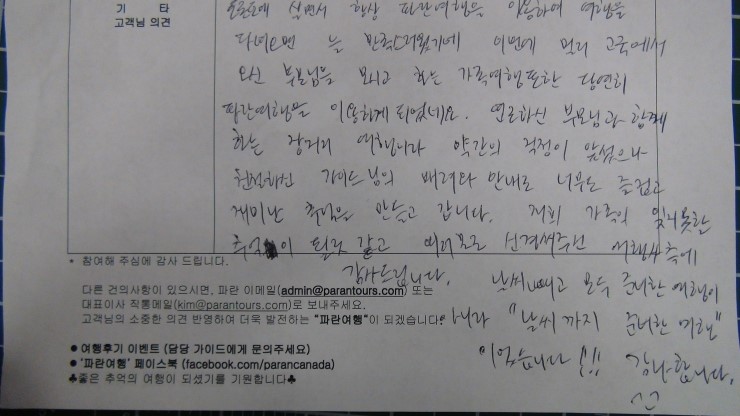 기 타
고객님 의견
토론토에 살면서 항상 파란여행을 이용하여 여행을
다녀오면 늘 만족스러웠기에 이번에 멀리 고국에서
오신 부모님을 모시고 하는 가족여행또한 당연히
파란여행을 이용하게 되었네요. 연로하신 부모님과 함께
하는 장거리 여행이라 약간의 걱정이 앞섰으나
친절하신 가이드님의 배려와 안내로 너무도 즐겁고
재미난 추억을 만들고 갑니다. 저희 가족의 잊지못할
추억이 될것 같고 여러모로 신경써주신 여행사측에
감사드립니다.
* 참여해 주심에 감사 드립니다.
다른 건의사항이 있으시면, 파란 이메일(admin@parantours.com) 또는
대표이사 직통메일(kim@parantours.com)로 보내주세요.
고객님의 소중한 의견 반영하여 더욱 발전하는 "파란여행"이 되겠습니다.
날씨빼고 모두 준비한 여행이
아니라 "날씨까지 준비한 여행"
이었습니다 !!! 감사합니다.
^^
● 여행후기 이벤트 (담당 가이드에게 문의주세요)
● '파란여행' 페이스북 (facebook.com/parancanada)
♣좋은 추억의 여행이 되셨기를 기원합니다♣